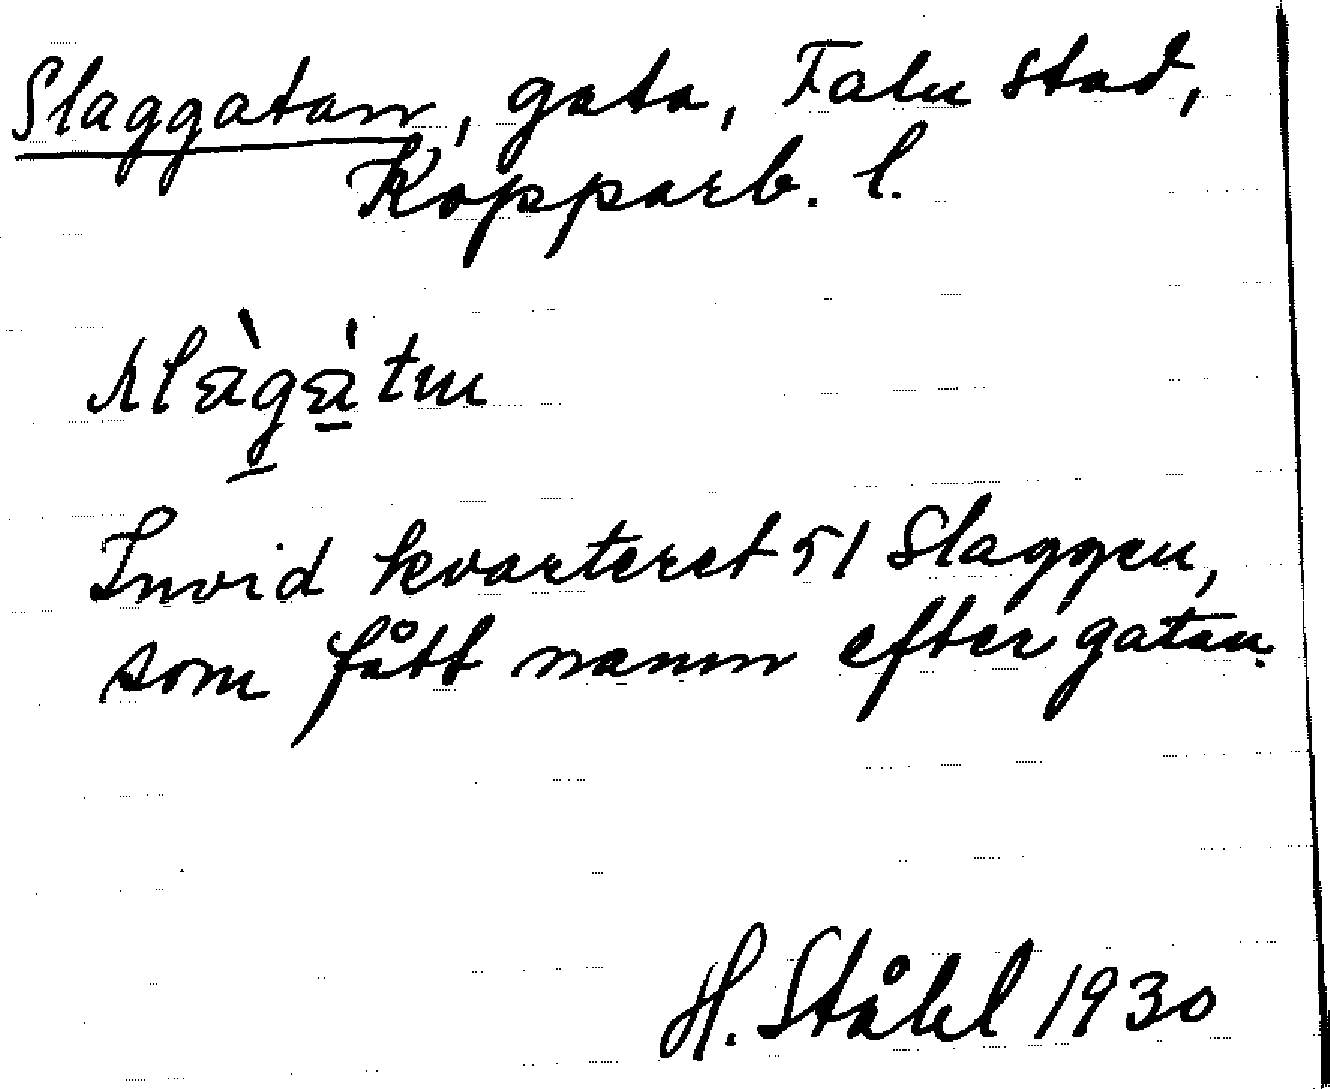 Slaggatan, gata, Falu stad,
Kopparb. l.
Invid kvarteret 51 Slaggen,
som fått namn efter gatan.
H. Ståhl 1930